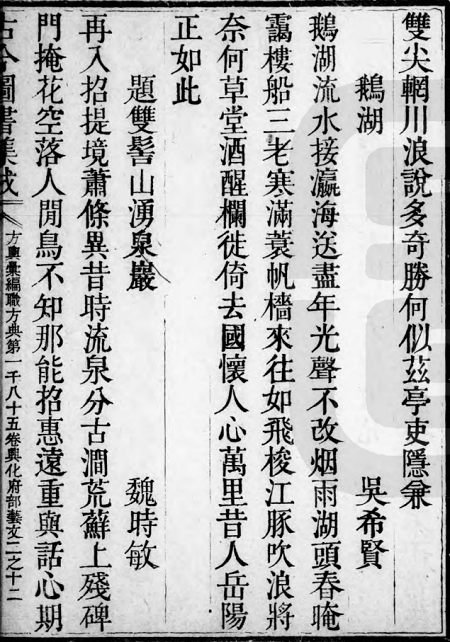 雙尖輞川浪說多奇勝何似茲亭吏隱兼
鵝湖　吳希賢
鵝湖流水接瀛海送盡年光聲不改烟雨湖頭春晻
靄樓船三老寒滿蓑帆檣來往如飛梭江豚吹浪將
奈何草堂酒醒欄徙倚去國懷人心萬里昔人岳陽
正如此
題雙髻山湧泉巖　魏時敏
再入招提境蕭條異昔時流泉分古澗荒蘚上殘碑
門掩花空落人閒鳥不知那能招惠遠重與話心期
古今圖書集成　方輿彙編職方典第一千八十五卷興化府部藝文二之十二